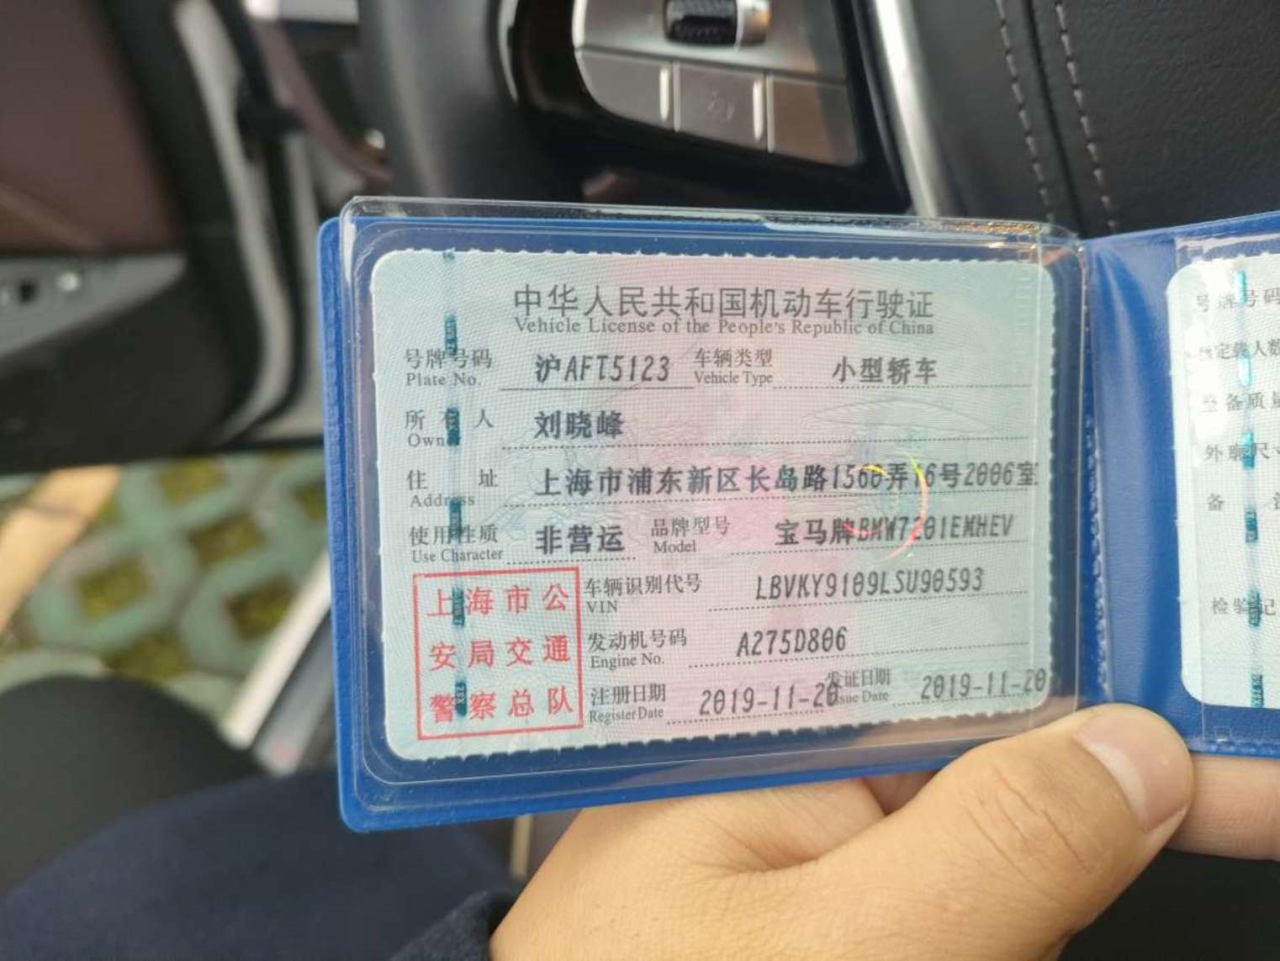 中华人民共和国机动车行驶证
Vehicle License of the People's Republic of China
号牌号码 沪AFT5123 车辆类型 小型轿车
Plate No. Vehicle Type
所有人 刘晓峰
Owner
住址 上海市浦东新区长岛路1560弄16号2006室
Address
使用性质 非营运 品牌型号 宝马牌BMW7201EMHEV
Use Character Model
上海市公
安局交通
警察总队
车辆识别代号 LBVKY9109LSU90593
VIN
发动机号码 A275D806
Engine No.
注册日期 2019-11-20 发证日期 2019-11-20
Register Date Issue Date
号牌号码
整备质量
外廓尺寸
备
检验记